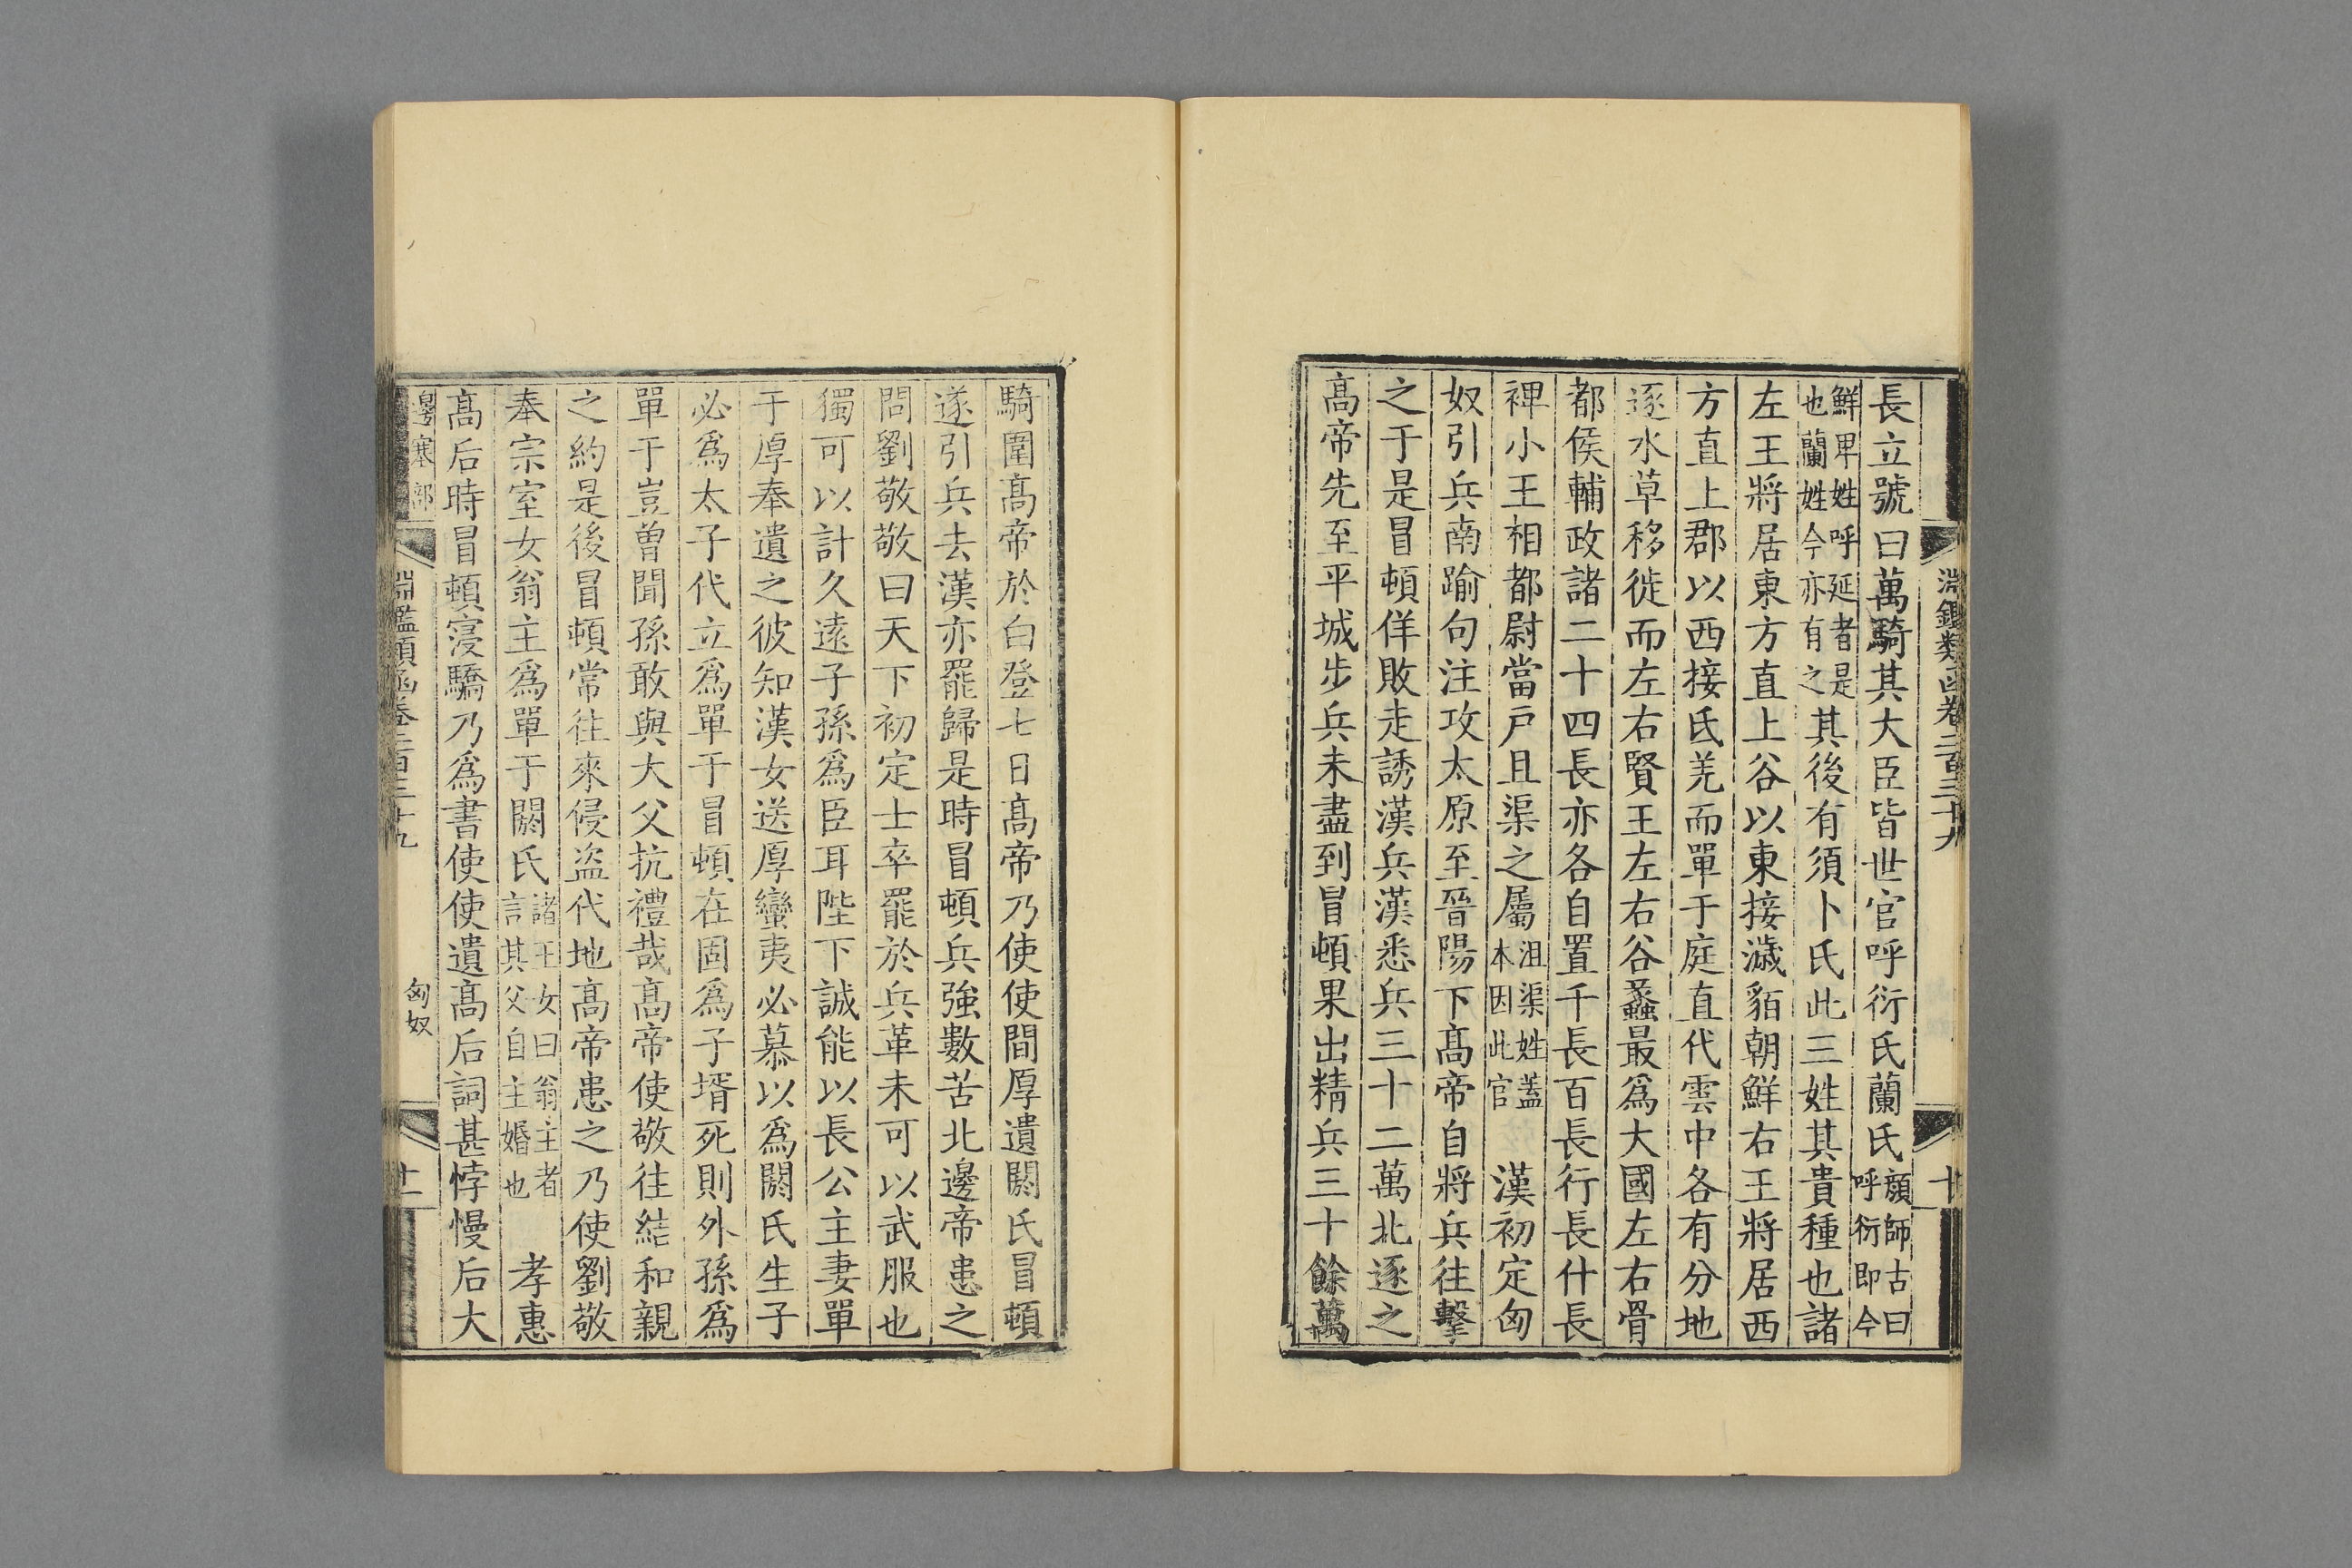 淵鑑類函卷二百三十九
十
長立號曰萬騎其大臣皆世官呼衍氏蘭氏顔師古曰呼衍即今
鮮卑姓呼延者是也蘭姓今亦有之其後有須卜氏此三姓其貴種也諸
左王將居東方直上谷以東接濊貊朝鮮右王將居西
方直上郡以西接氐羌而單于庭直代雲中各有分地
逐水草移徙而左右賢王左右谷蠡最爲大國左右骨
都侯輔政諸二十四長亦各自置千長百長行長什長
裨小王相都尉當戸且渠之屬沮渠姓蓋本因此官 漢初定匈
奴引兵南踰句注攻太原至晉陽下髙帝自將兵往擊
之于是冒頓佯敗走誘漢兵漢悉兵三十二萬北逐之
髙帝先至平城步兵未盡到冒頓果出精兵三十餘萬
騎圍髙帝於白登七日髙帝乃使使間厚遺閼氏冒頓
遂引兵去漢亦罷歸是時冒頓兵強數苦北邊帝患之
問劉敬敬曰天下初定士卒罷於兵革未可以武服也
獨可以計久遠子孫爲臣耳陛下誠能以長公主妻單
于厚奉遺之彼知漢女送厚蠻夷必慕以爲閼氏生子
必爲太子代立爲單于冒頓在固爲子壻死則外孫爲
單于豈曽聞孫敢與大父抗禮哉髙帝使敬往結和親
之約是後冒頓常往來侵盗代地髙帝患之乃使劉敬
奉宗室女翁主爲單于閼氏諸王女曰翁主者言其父自主婚也 孝惠
髙后時冒頓寖驕乃爲書使使遺髙后詞甚悖慢后大
邊塞部
淵鑑類函卷二百三十九
匈奴
十一